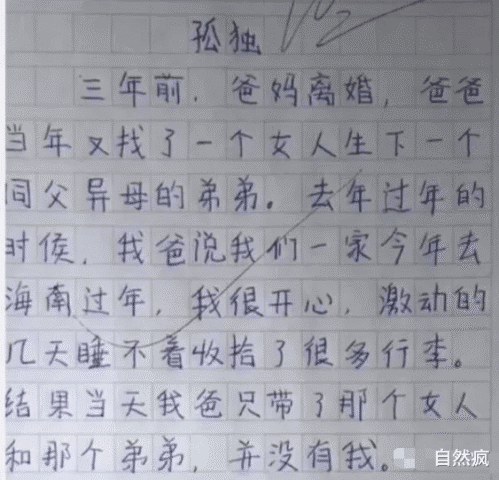 孤独
三年前，爸妈离婚，爸爸
当年又找了一个女人生下一个
同父异母的弟弟。去年过年的
时侯，我爸说我们一家今年去
海南过年，我很开心，激动的
几天睡不着收拾了很多行李。
结果当天我爸只带了那个女人
和那个弟弟，并没有我。
自然疯